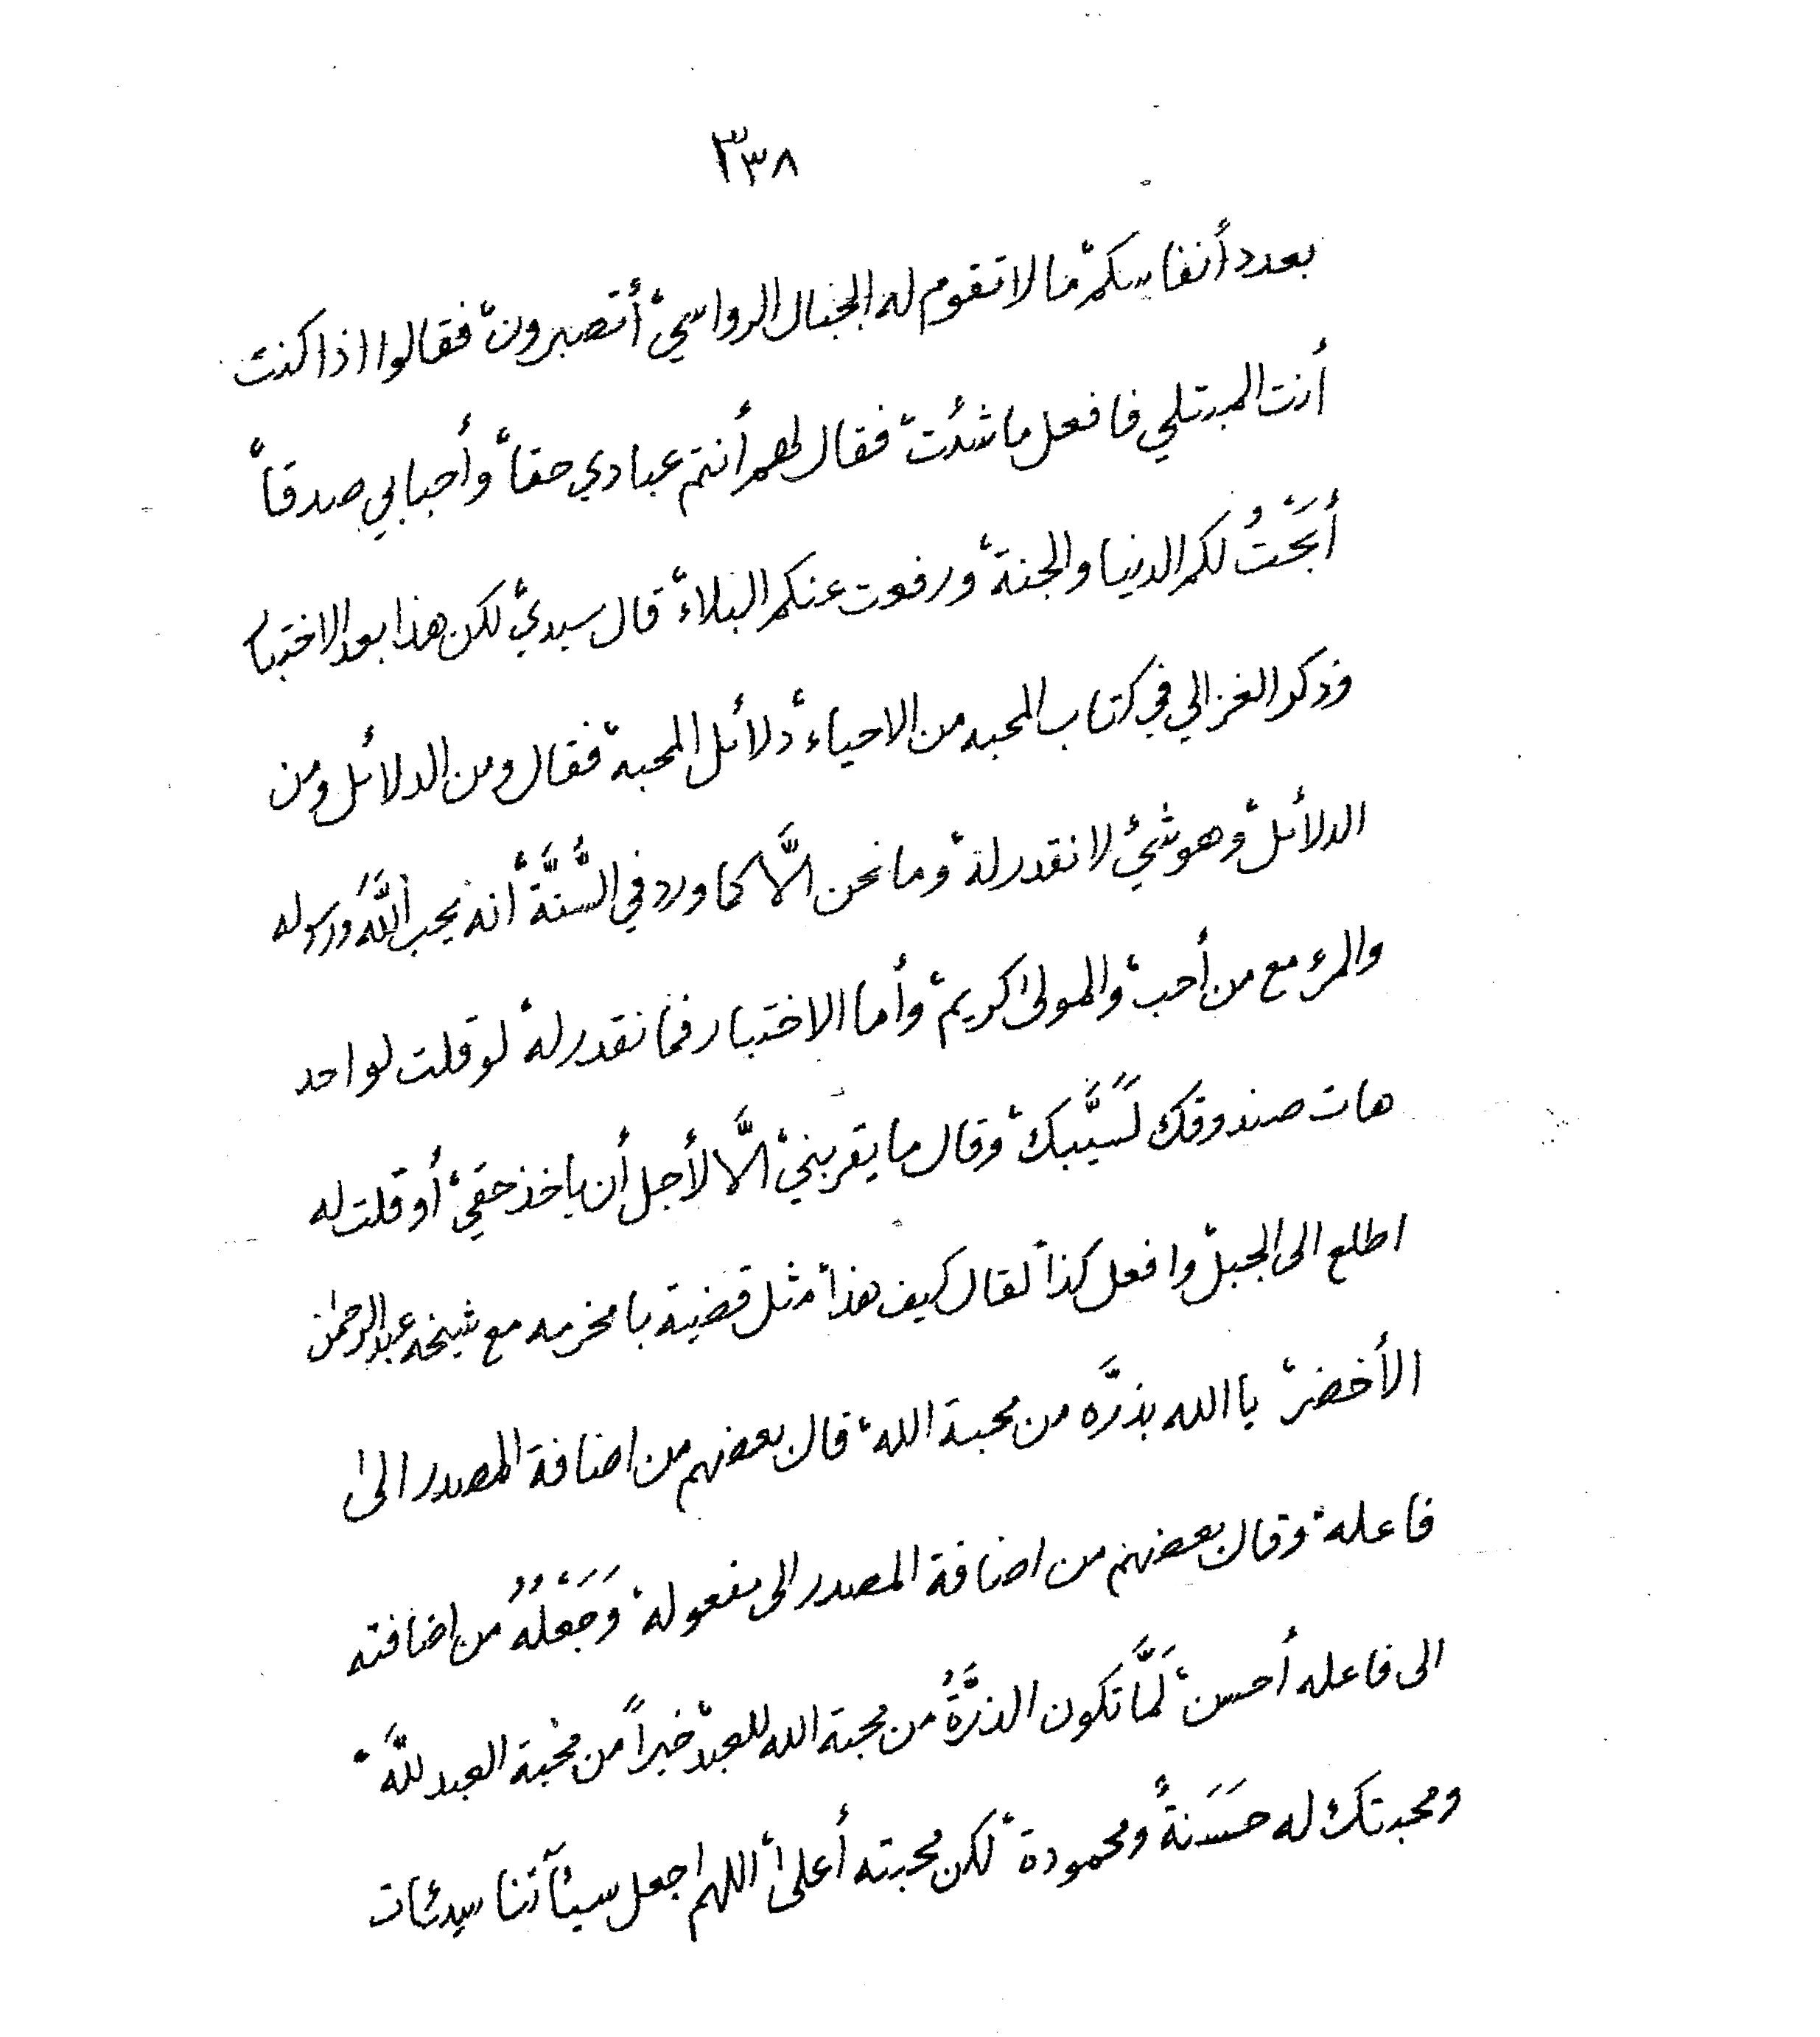 ٣٣٨
بعدد أنفاسكم، ما لا تقوم له الجبال الرواسي، أتصبرون، فقالوا اذا كنت
أنت المبتلي فافعل ما شئت، فقال لهم أنتم عبادي حقاً، وأحبابي صدقاً،
أبَحْتُ لكم الدنيا والجنة، ورفعت عنكم البلاء، قال سيدي، لكن هذا بعد الاختبار
وذكر الغزالي في كتاب المحبه من الاحياء، دلائل المحبة، فقال ومن الدلائل ومن
الدلائل، وهو شيء لا نقدر له، وما نحن الَّا كما ورد في السُّنَّة، أنه يحب اللَّهَ ورسوله
والمرء مع من أحب، والمولى كريم، وأما الاختبار فما نقدر له، لو قلت لواحد
هات صندوقك لَسَيَّبك، وقال ما يقربني، الَّا لأجل أن يأخذ حقي، أو قلت له
اطلع الى الجبل، وافعل كذا، لقال كيف هذا، مثل قضية بامخرمه مع شيخه عبدالرحمن
الأخضر، يا الله بذرَّه من محبة الله، قال بعضهم من اضافة المصدر الى
فاعله، وقال بعضهم من اضافة المصدر الى مفعوله، وَجَعْلُهُ من اضافته
الى فاعله أحسن، لَمَّا تكون الذرَّةُ من محبة الله للعبد، خيراً من محبة العبد للَّه،
ومحبتك له حَسَنةٌ ومحمودة، لكن محبته أعلى، اللهم اجعل سيئآتنا سيئات